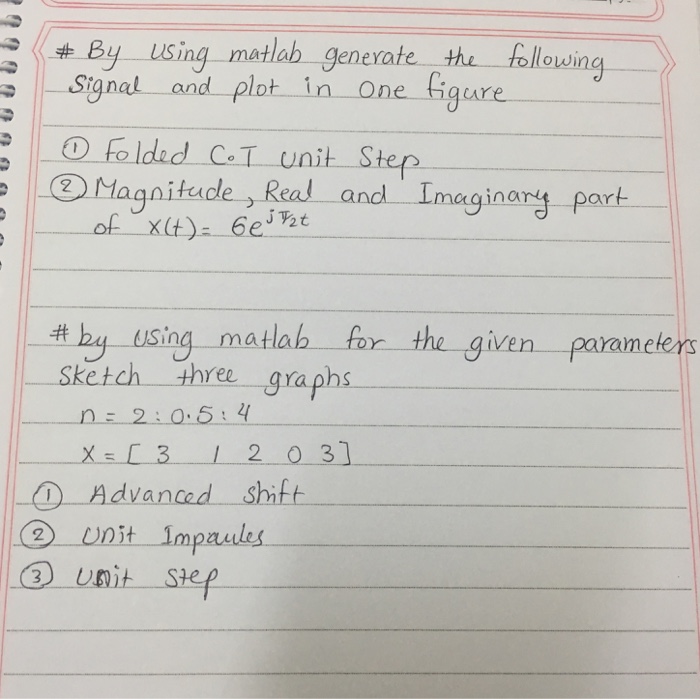 # By using matlab generate the following
Signal and plot in one figure
① Folded C.T unit Step
② Magnitude, Real and Imaginary part
of x(t) = 6e^jπ/2t
# by using matlab for the given parameters
Sketch three graphs
n = 2:0.5:4
X = [ 3 1 2 0 3]
① Advanced shift
② Unit Impaules
③ Unit step